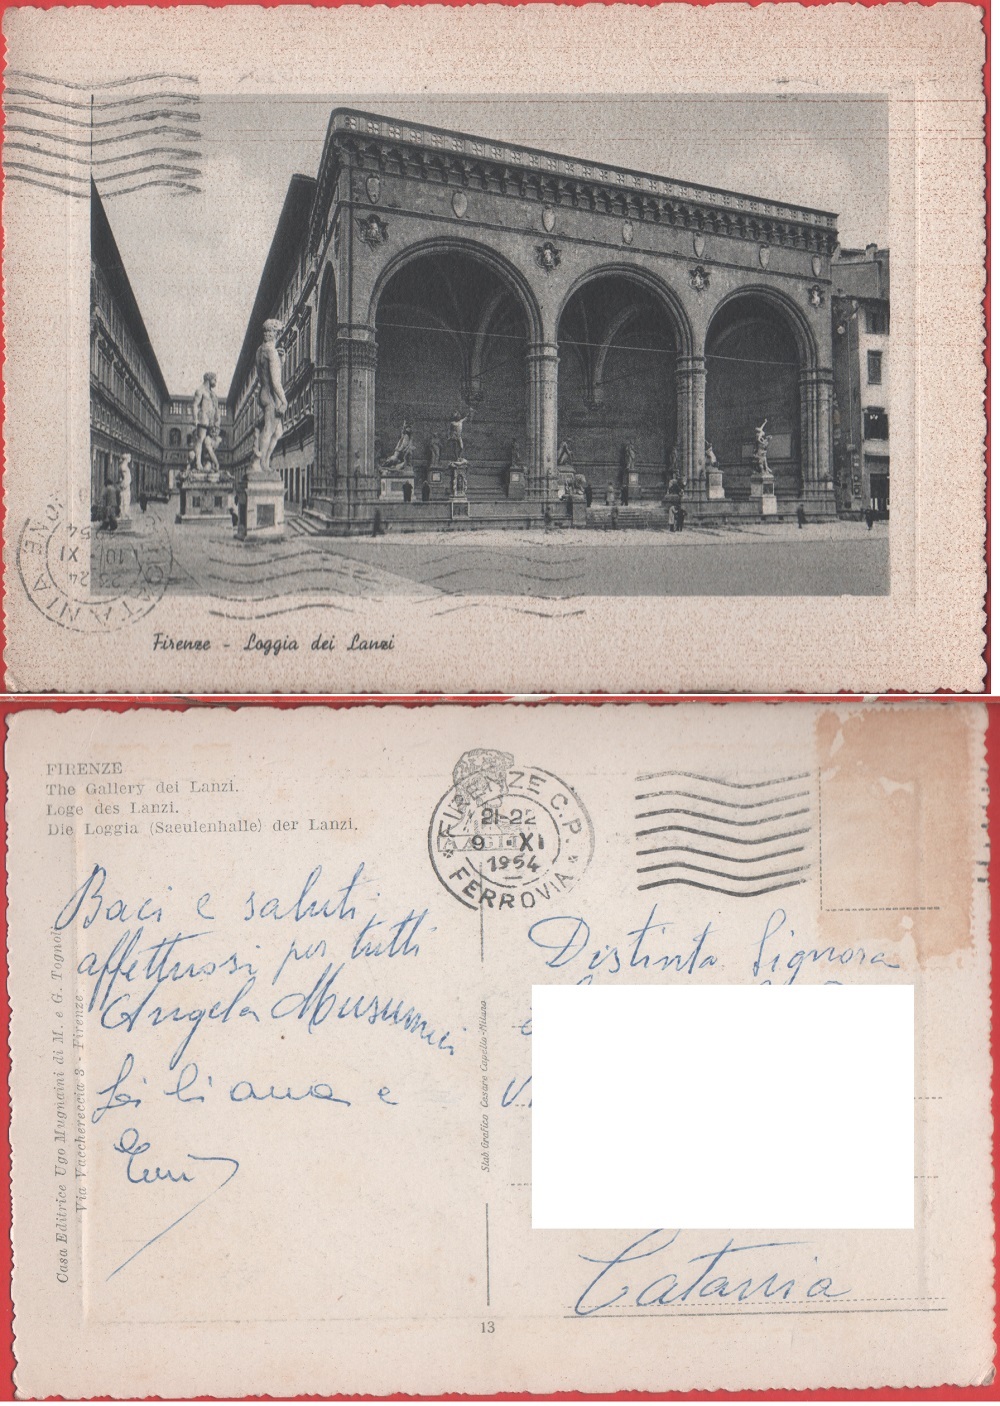 CATANIA
23-24
10 XI
1954
Firenze - Loggia dei Lanzi
FIRENZE
The Gallery dei Lanzi.
Loge des Lanzi.
Die Loggia (Saeulenhalle) der Lanzi.
FIRENZE C.P.
21-22
9 · XI
1954
FERROVIA
Baci e saluti
affettuosi per tutti
Angela Musumeci
Liliana e
Distinta Signora
V.
Catania
Casa Editrice Ugo Mugnaini di M. e G. Tognoli
Via Vacchereccia 3 - Firenze
Stab. Grafico Cesare Capello-Milano
13